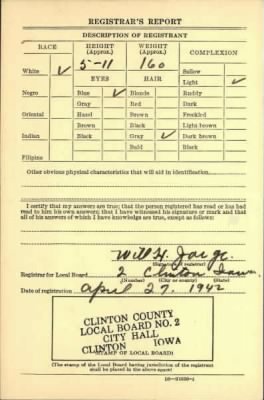 REGISTRAR'S REPORT
DESCRIPTION OF REGISTRANT
RACE HEIGHT (Approx.) WEIGHT (Approx.) COMPLEXION
White ✓ 5-11 160 Sallow
EYES HAIR Light ✓
Negro Blue ✓ Blonde Ruddy
Gray Red Dark
Oriental Hazel Brown Freckled
Brown Black Light brown
Indian Black Gray ✓ Dark brown
Bald Black
Filipino
Other obvious physical characteristics that will aid in identification
I certify that my answers are true; that the person registered has read or has had
read to him his own answers; that I have witnessed his signature or mark and that
all of his answers of which I have knowledge are true, except as follows:
Will H.
(Signature of registrar)
Registrar for Local Board 2 Clinton Iowa
(Number) (City or county) (State)
Date of registration April 27, 1942
CLINTON COUNTY
LOCAL BOARD NO. 2
CITY HALL
CLINTON IOWA
(STAMP OF LOCAL BOARD)
(The stamp of the Local Board having jurisdiction of the registrant
shall be placed in the above space)